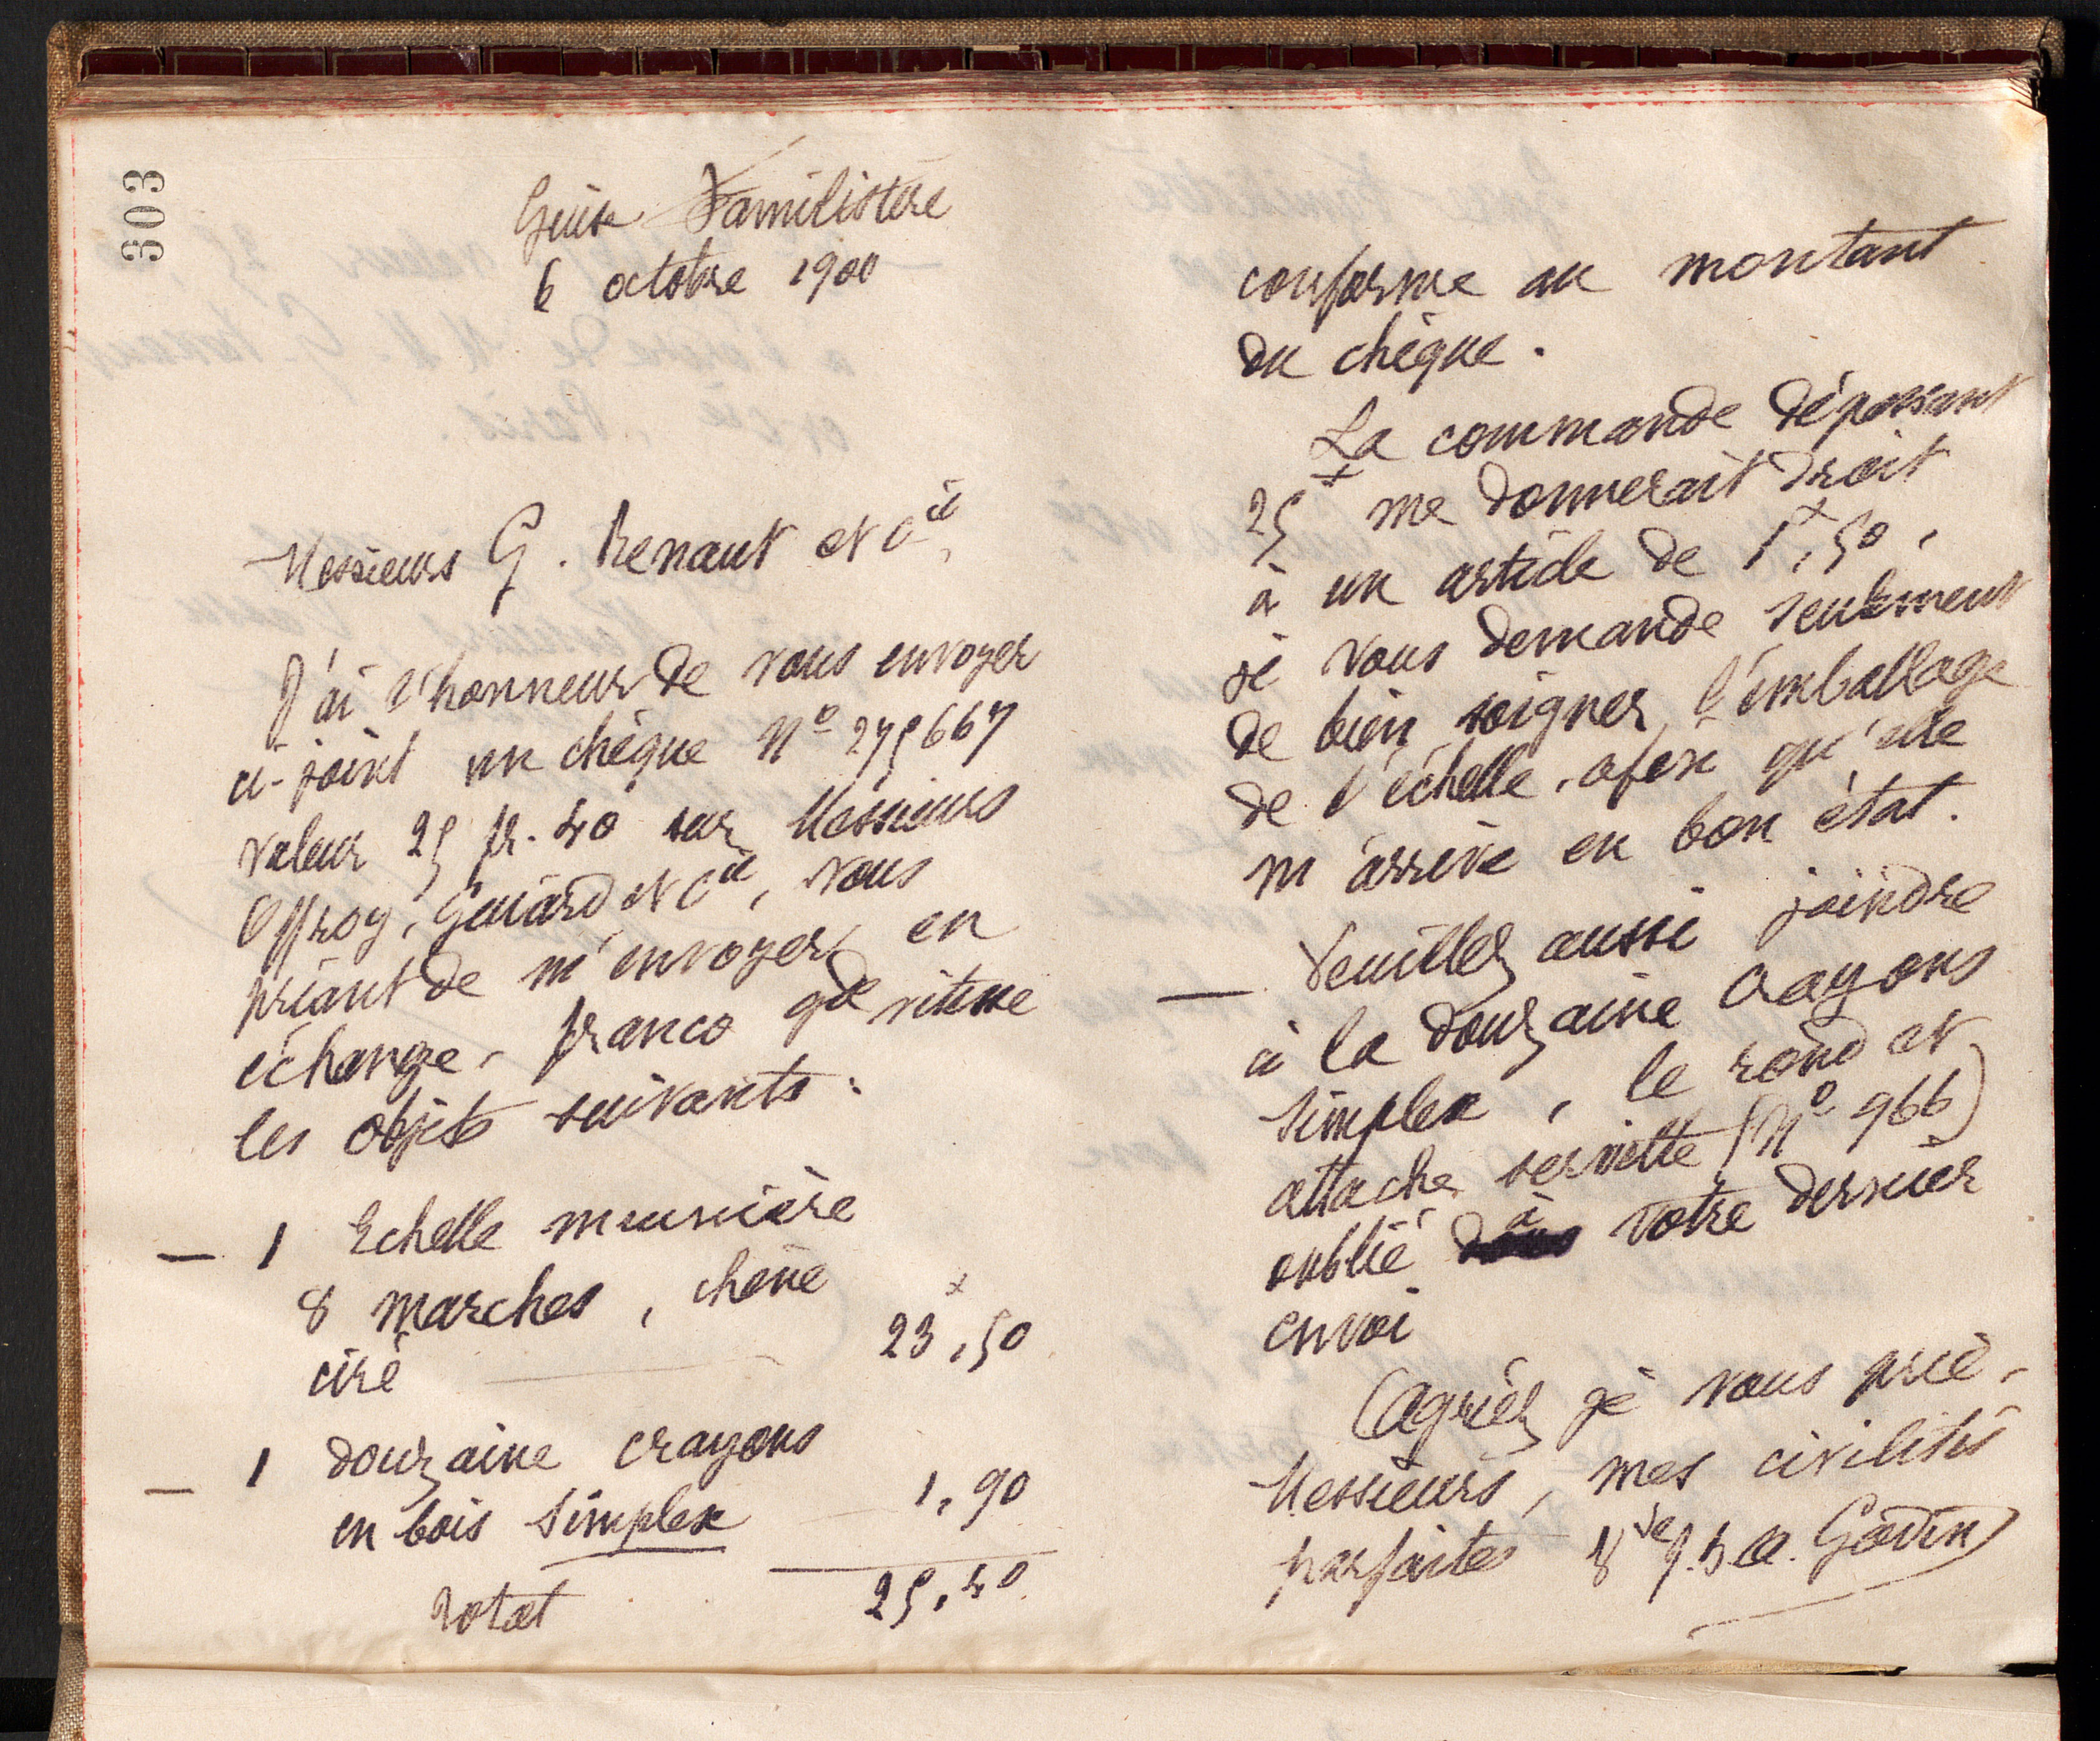 303
Guise Familistère
6 octobre 1900
Messieurs G. Renaut et Cie,
J'ai l'honneur de vous envoyer
ci-joint un chèque No 275667
valeur 25 fr. 40 sur Messieurs
Offroy, Guiard et Cie, vous
priant de m'envoyer, en
échange, franco gde vitesse
les objets suivants :
— 1 Echelle meunière
8 marches, chêne
ciré 23f,50
— 1 douzaine crayons
en bois Simplex 1,90
Total 25,40
conforme au montant
du chèque.
La commande dépassant
25f me donnerait droit
à un article de 1f,50,
je vous demande seulement
de bien soigner l'emballage
de l'échelle, afin qu'elle
m'arrive en bon état.
— Veuillez aussi joindre
à la douzaine crayons
Simplex, le rond et
attache serviette (No 966)
oublié à votre dernier
envoi
Agréez je vous prie,
Messieurs, mes civilités
parfaites Vve J. B. A. Godin